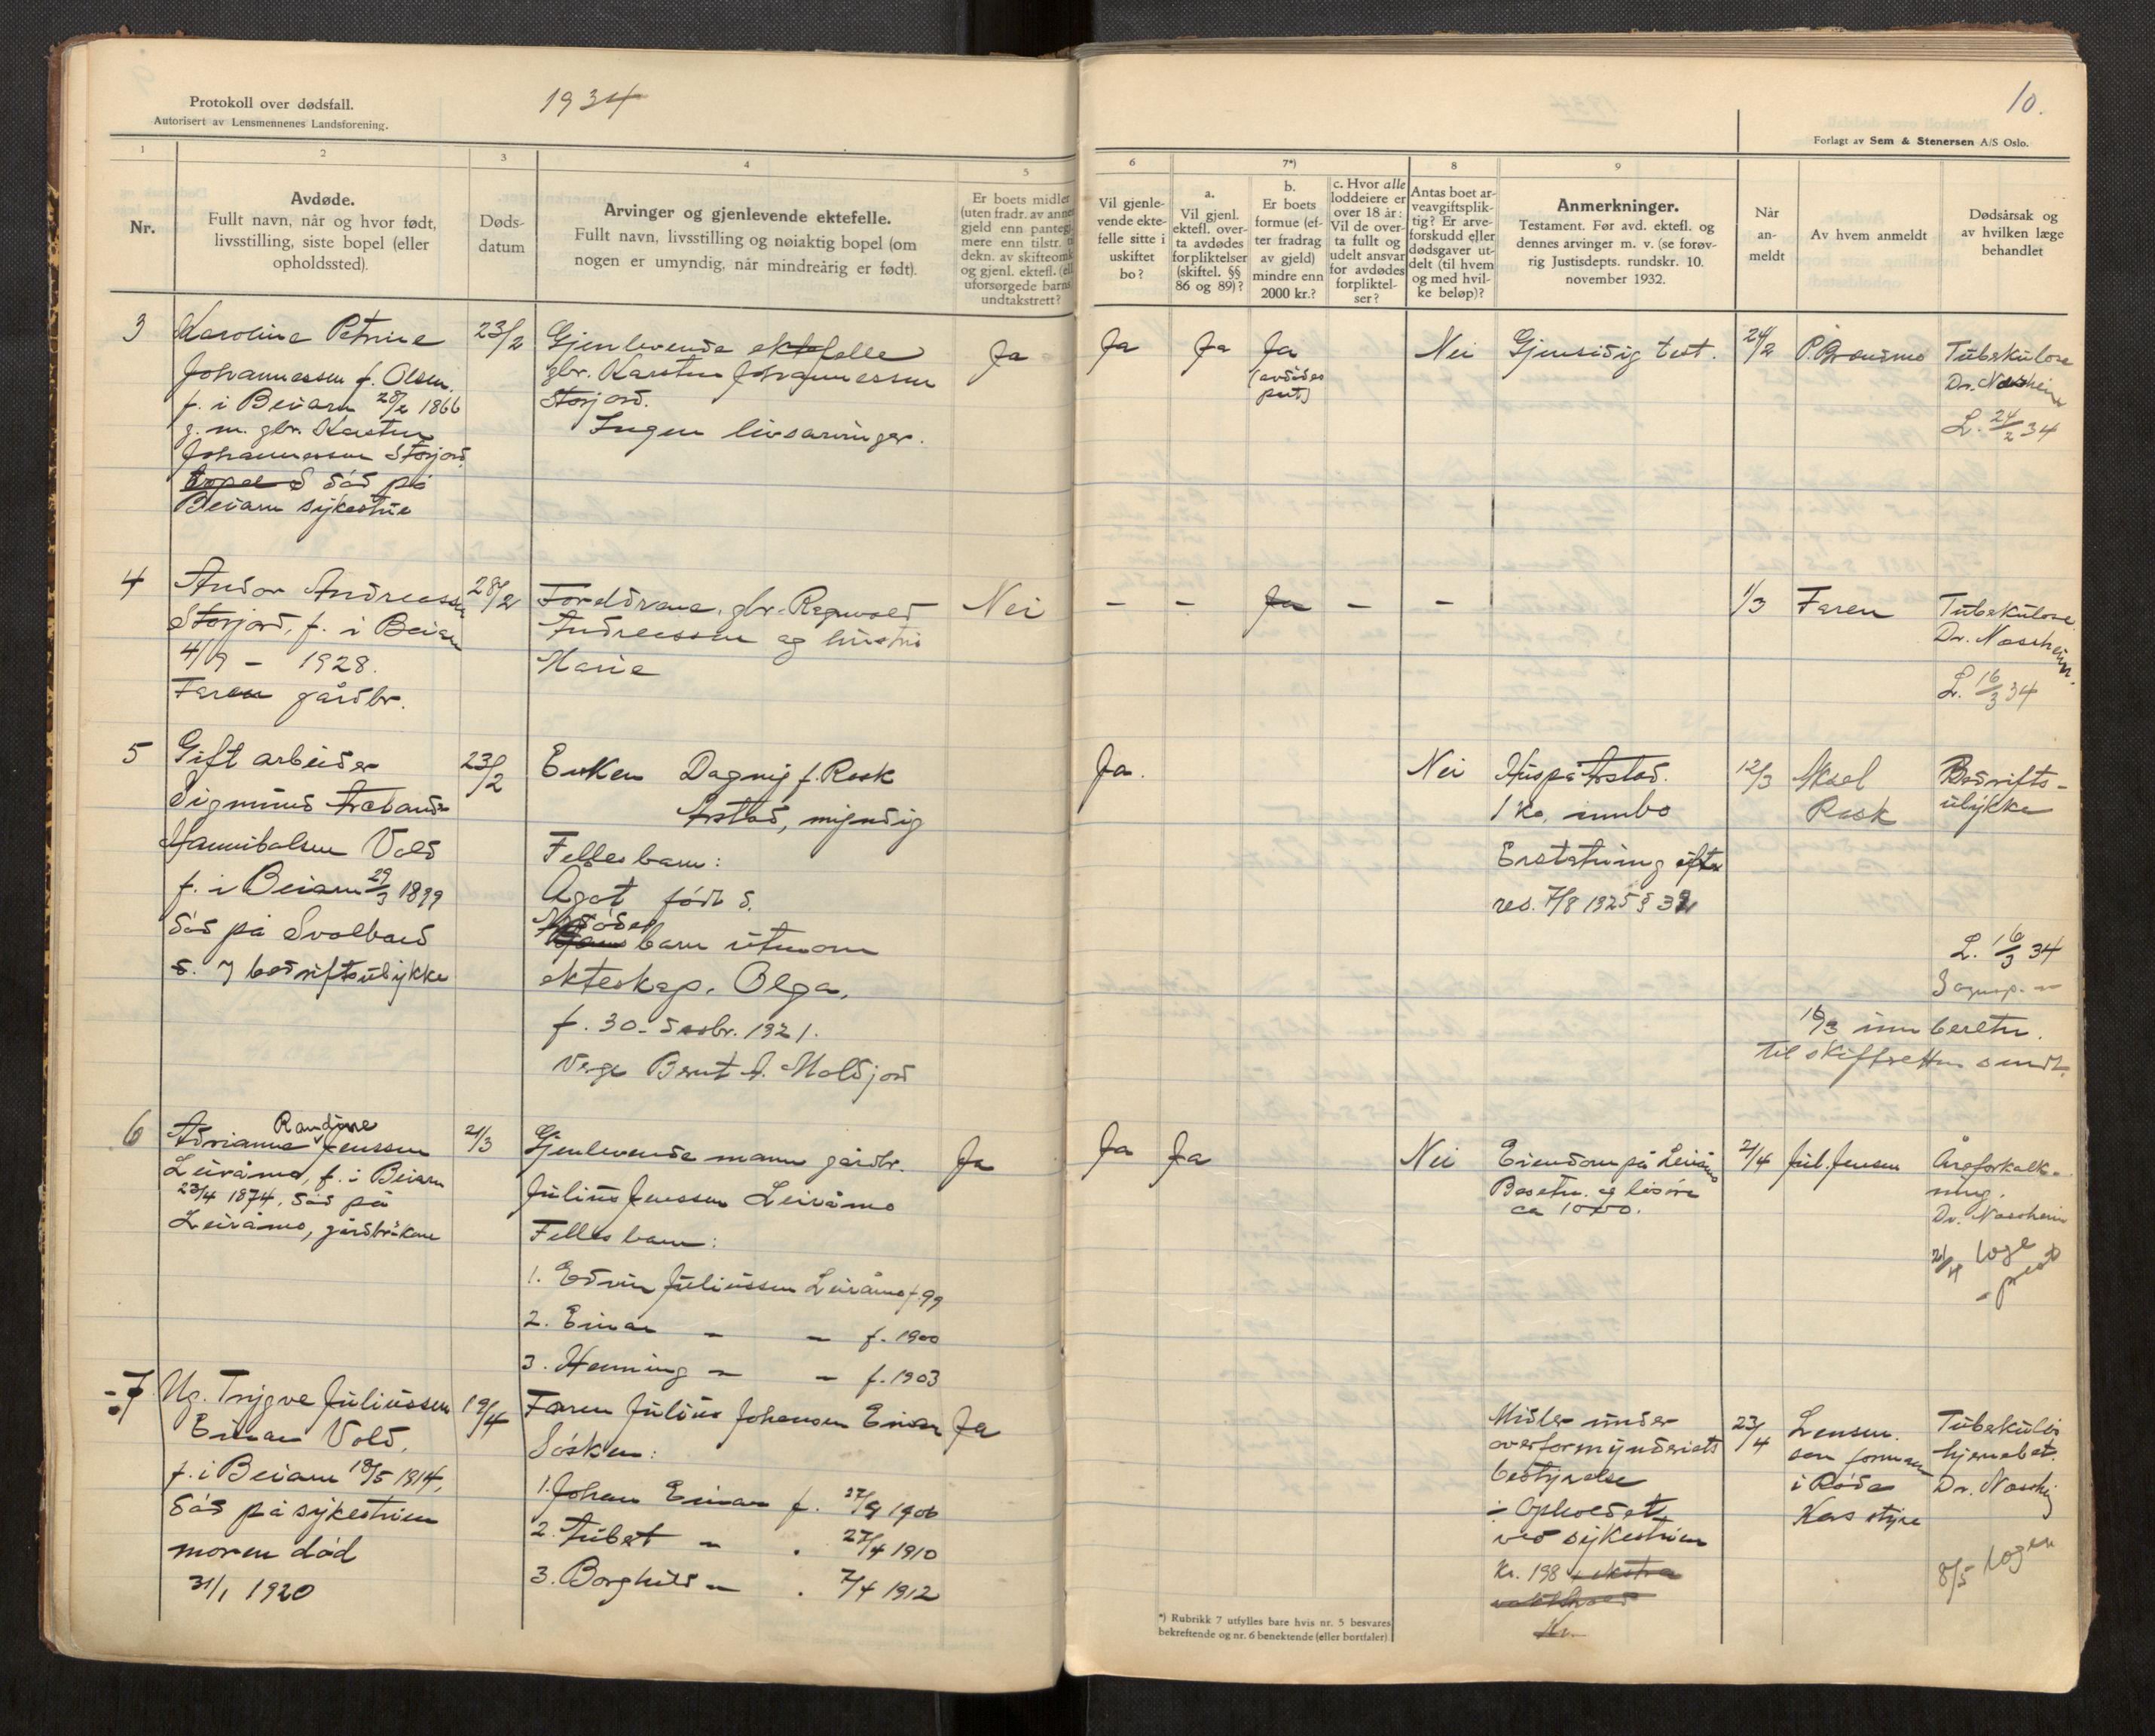 Protokoll over dødsfall.
Autorisert av Lensmennenes Landsforening.
1934
10.
Forlagt av Sem & Stenersen A/S Oslo.
1
2
3
4
5
6
7*)
8
9
Nr.
Avdøde.
Fullt navn, når og hvor født,
livsstilling, siste bopel (eller
opholdssted).
Døds-
datum
Arvinger og gjenlevende ektefelle.
Fullt navn, livsstilling og nøiaktig bopel (om
nogen er umyndig, når mindreårig er født).
Er boets midler
(uten fradr. av annen
gjeld enn pantegj.
mere enn tilstr. til
dekn. av skifteomk.
og gjenl. ektefl. (ell.
uforsørgede barns
undtakstrett?
Vil gjenle-
vende ekte-
felle sitte i
uskiftet
bo?
a.
Vil gjenl.
ektefl. over-
ta avdødes
forpliktelser
(skiftel. §§
86 og 89)?
b.
Er boets
formue (ef-
ter fradrag
av gjeld)
mindre enn
2000 kr.?
c. Hvor alle
loddeiere er
over 18 år:
Vil de over-
ta fullt og
udelt ansvar
for avdødes
forpliktel-
ser?
Antas boet ar-
veavgiftsplik-
tig? Er arve-
forskudd eller
dødsgaver ut-
delt (til hvem
og med hvil-
ke beløp)?
Anmerkninger.
Testament. Før avd. ektefl. og
dennes arvinger m. v. (se forøv-
rig Justisdepts. rundskr. 10.
november 1932.
Når
an-
meldt
Av hvem anmeldt
Dødsårsak og
av hvilken læge
behandlet
3
Karoline Petrine
Johannessen f. Olsen.
f. i Beiarn 28/2 1866
g. m. gbr. Karsten
Johannessen Storjord.
bopel d død på
Beiarn sykestue
23/2
Gjenlevende ektefelle
gbr. Karsten Johannessen
Storjord.
Ingen livsarvinger.
Ja
Ja
Ja
Ja
(avdødes
part)
Nei
Gjensidig test.
24/2
P. Granmo
Tuberkulose
Dr. Noschein
L. 24/2 34
4
Andor Andreassen
Storjord, f. i Beiarn
4/9 - 1928.
Faren gårdbr.
28/2
Foreldrene, gbr. Ragnvald
Andreassen og hustru
Marie
Nei
-
-
Ja
-
-
1/3
Faren
Tuberkulose
Dr. Noschein.
L. 16/3 34
5
Gift arbeider
Sigmund
Hannibalsen Vold
f. i Beiarn 29/3 1899
død på Svalbard
d. 7 bedriftsulykke
23/2
Enken Dagny f. Rosk
Arstad, myndig
Felles barn:
Agot født d.
Avdødes
Hans barn utenom
ekteskap. Olga,
f. 30. desbr. 1921.
Verge Bernt A. Moldjord
Ja.
Nei
Hus på Arstad.
1 ko, innbo
Erstatning efter
res. 7/8 1925 § 32
12/3
Aksel
Rosk
Bedrifts-
ulykke
L. 16/3 34
Sognep. -
16/3 innberetn.
til skifteretten sendt.
6
Randine
Adrianna Jenssen
Leiråmo, f. i Beiarn
23/4 1874. død på
Leiråmo, gårdbr.kone
21/3
Gjenlevende mann gårdbr.
Julius Jenssen Leiråmo
Felles barn:
1. Edvin Juliussen Leiråmo f. 99
2. Einar - - f. 1900
3. Henning - - f. 1903
Ja
Ja
Ja
Nei
Eiendom på Leiråmo
Besetn. og løsøre
ca 1000.
2/4
Jul. Jensen
Åreforkalk-
ning.
Dr. Noschein
21/4 læge
- prest
7
Ug. Trygve Juliussen
Einan Vold,
f. i Beiarn 18/5 1914,
død på sykestuen
moren død
31/1 1920
19/4
Faren Julius Johansen Einan
Søsken:
1. Johan Einan f. 27/9 1906
2. - . 27/4 1910
3. Borghild - . 7/4 1912
Ja
Midler under
overformynderiets
bestyrelse
Opholdet
ved sykestuen
Kr. 198 ekstra
Kr.
23/4
Lensm.
som formann
i Røde
Kors styre
Tuberkuløs
hjernebet.
Dr. Noschein
8/5 lægen
*) Rubrikk 7 utfylles bare hvis nr. 5 besvares
bekreftende og nr. 6 benektende (eller bortfaler)